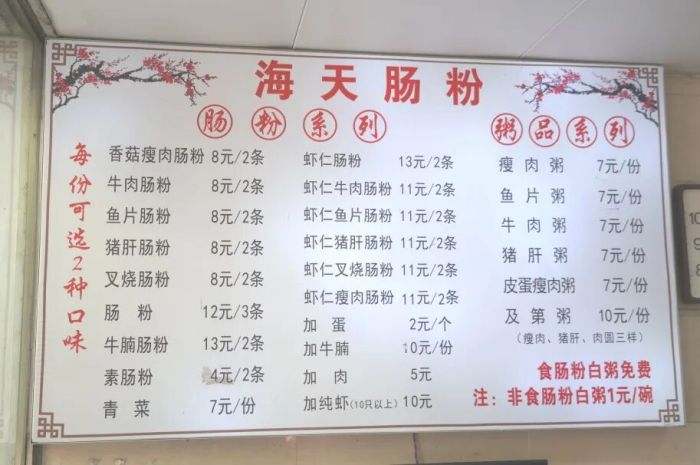 海天肠粉
肠粉系列
每份可选2种口味
香菇瘦肉肠粉 8元/2条
牛肉肠粉 8元/2条
鱼片肠粉 8元/2条
猪肝肠粉 8元/2条
叉烧肠粉 8元/2条
肠 粉 12元/3条
牛腩肠粉 13元/2条
素肠粉 4元/2条
青 菜 7元/份
虾仁肠粉 13元/2条
虾仁牛肉肠粉 11元/2条
虾仁鱼片肠粉 11元/2条
虾仁猪肝肠粉 11元/2条
虾仁叉烧肠粉 11元/2条
虾仁瘦肉肠粉 11元/2条
加 蛋 2元/个
加牛腩 10元/份
加 肉 5元
加纯虾(10只以上) 10元
粥品系列
瘦 肉 粥 7元/份
鱼 片 粥 7元/份
牛 肉 粥 7元/份
猪 肝 粥 7元/份
皮蛋瘦肉粥 7元/份
及 第 粥 10元/份
(瘦肉、猪肝、肉圆三样)
食肠粉白粥免费
注：非食肠粉白粥1元/碗
10
9
8